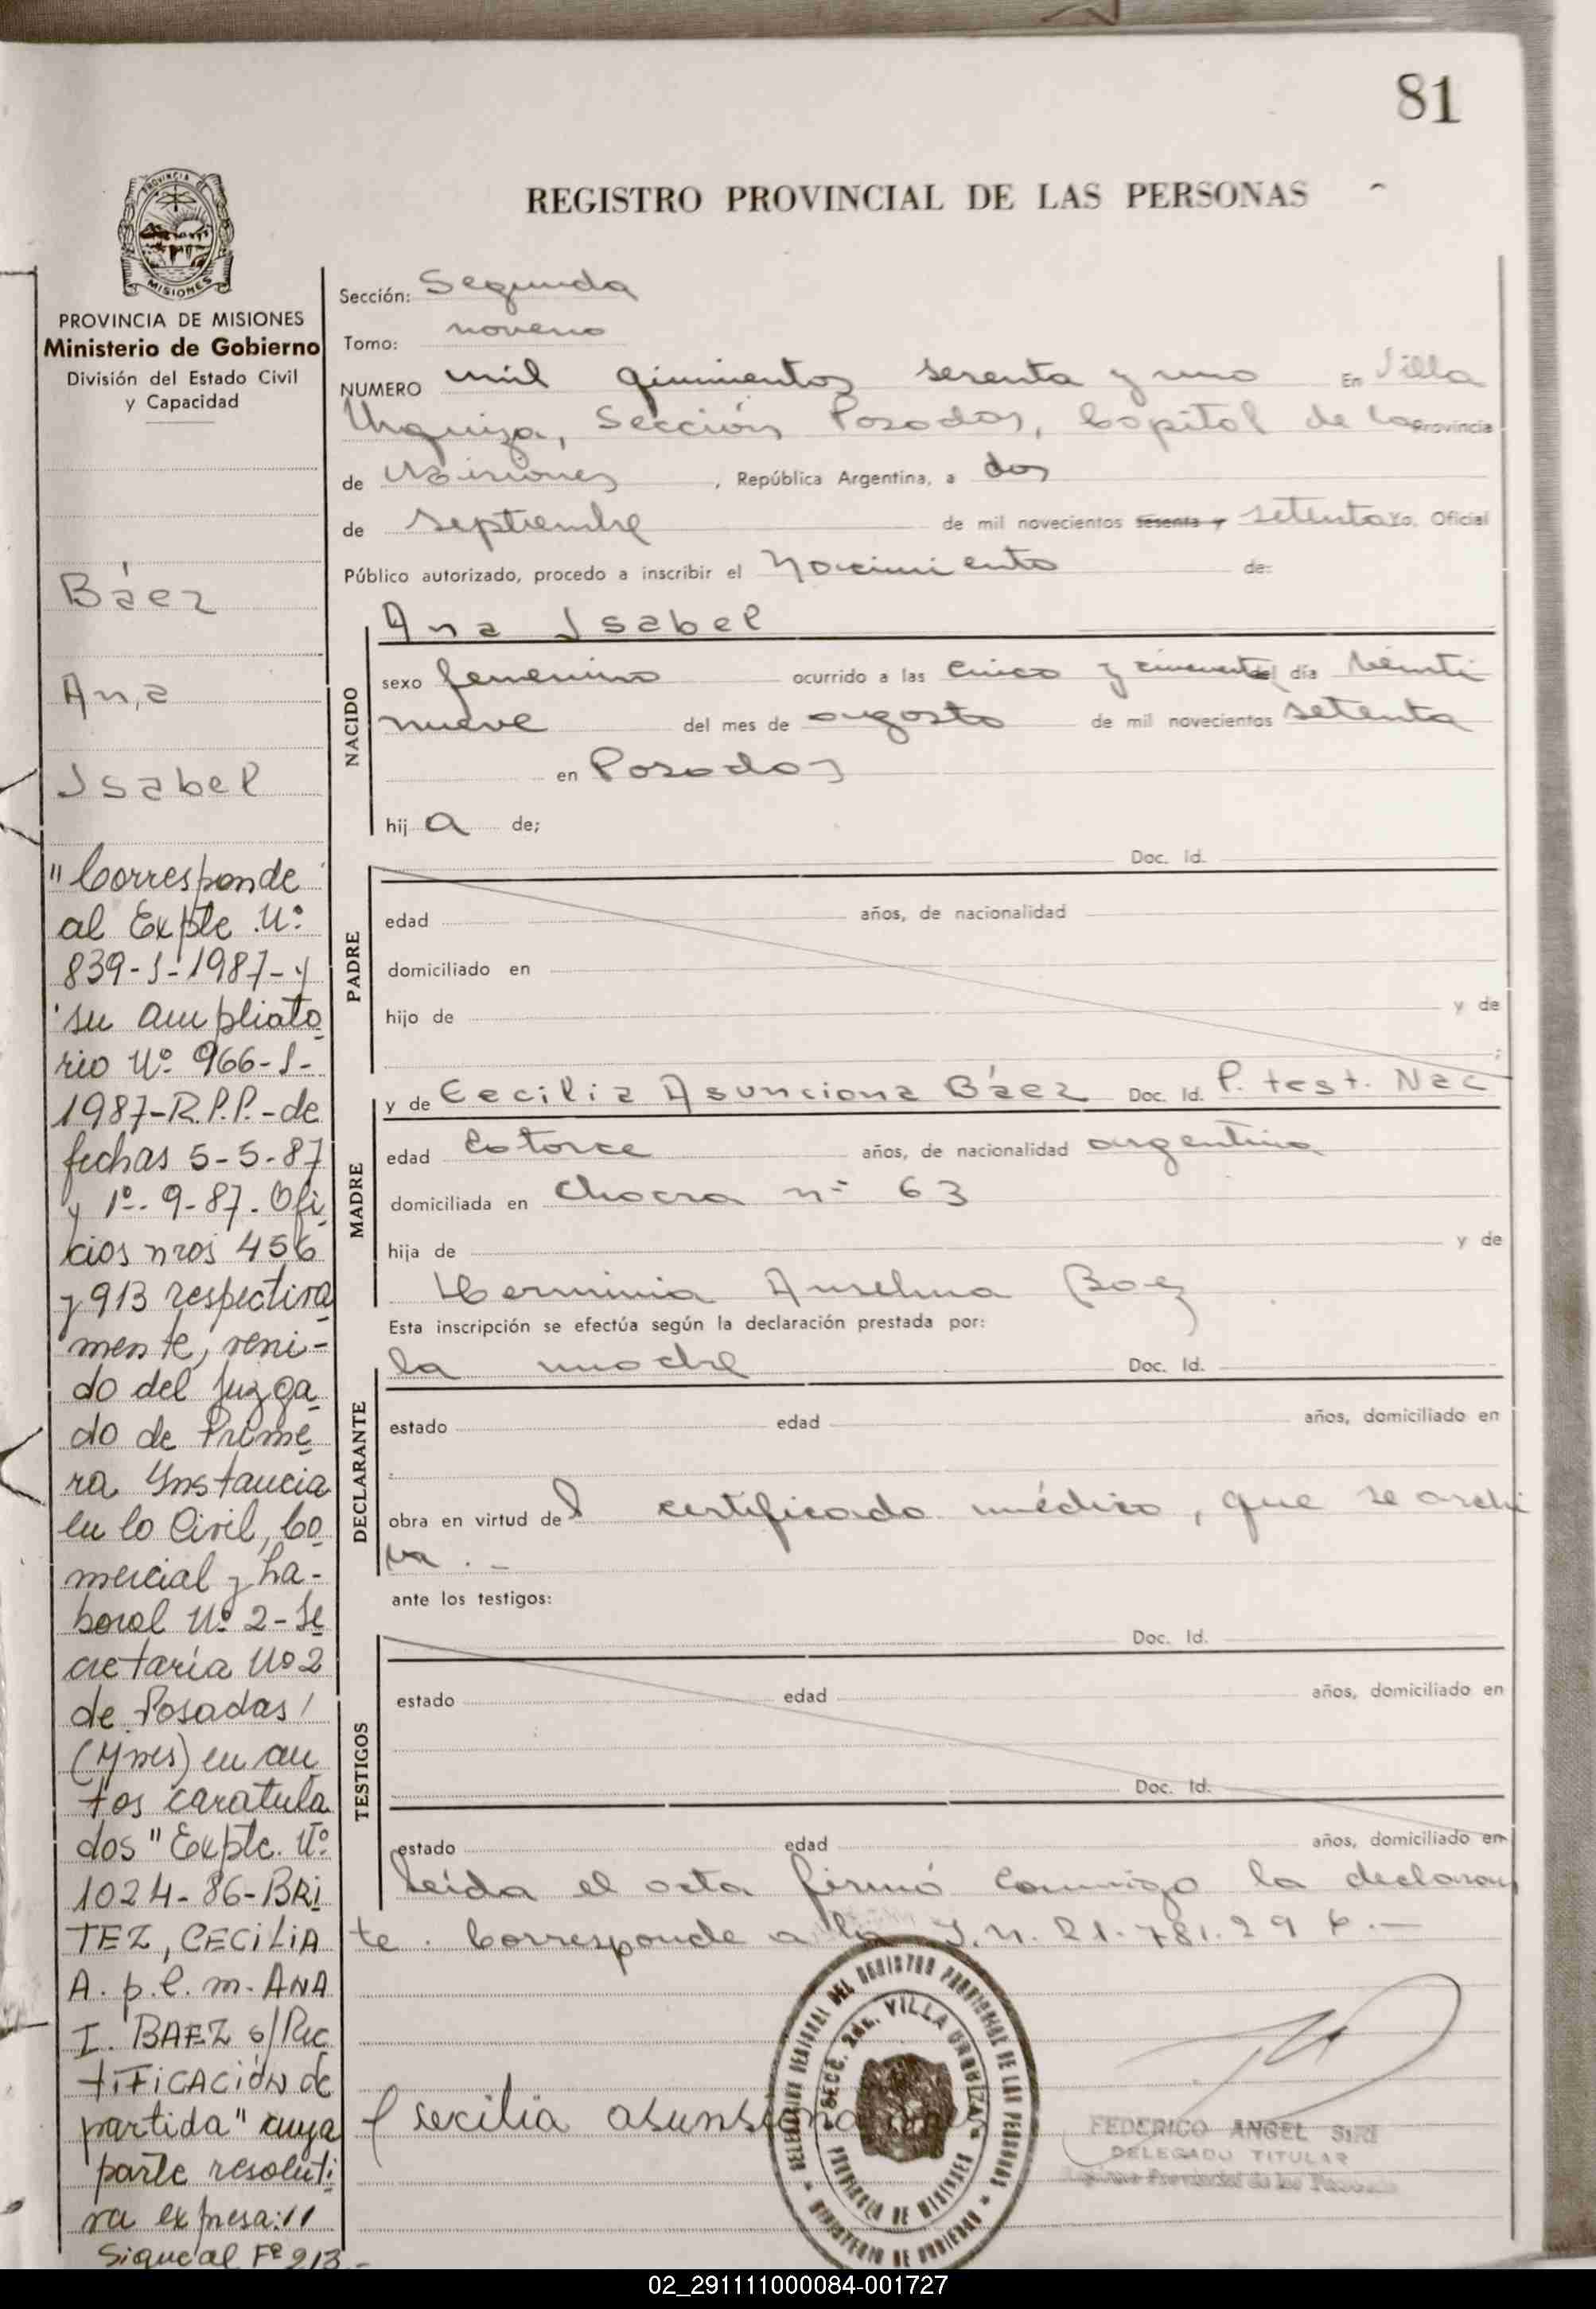 81
REGISTRO PROVINCIAL DE LAS PERSONAS
PROVINCIA DE MISIONES
PROVINCIA DE MISIONES
Ministerio de Gobierno
División del Estado Civil
y Capacidad
Báez
Ana
Isabel
"Corresponde
al Expte. Nº
839-S-1987- y
su ampliato
rio Nº 966-S-
1987-R.P.P.-de
fechas 5-5-87
y 1º-9-87. Ofi
cios nros 456
y 913 respectiva
mente, veni-
do del Juzga
do de Prime
ra Instancia
en lo Civil, Co
mercial y La-
boral Nº 2-Se
cretaría Nº 2
de Posadas
(Mnes) en au
tos caratula
dos "Expte. Nº
1024-86-BRI
TEZ, CECILIA
A. p.l.m. ANA
I. BAEZ s/Rec
tiFiCACIÓN de
partida" cuya
parte resoluti
va expresa:
Sigue al Fº 213.-
Sección: Segunda
Tomo: noveno
NUMERO mil quinientos sesenta y uno En Villa
Urquiza, Sección Posadas, Capital de la Provincia
de Misiones, República Argentina, a dos
de septiembre de mil novecientos sesenta y setenta Yo, Oficial
Público autorizado, procedo a inscribir el Nacimiento de:
NACIDO
Ana Isabel
sexo femenino ocurrido a las cinco y cincuenta del día veinti
nueve del mes de agosto de mil novecientos setenta
en Posadas
hij a de;
PADRE
Doc. Id.
edad años, de nacionalidad
domiciliado en
hijo de y de
;
MADRE
y de Cecilia Asunciona Báez Doc. Id. P. test. Nac
edad Catorce años, de nacionalidad argentina
domiciliada en Chacra nº 63
hija de y de
Herminia Anselma Baez
Esta inscripción se efectúa según la declaración prestada por:
DECLARANTE
la madre Doc. Id.
estado edad años, domiciliado en
obra en virtud del certificado médico, que se archi
va.-
ante los testigos:
TESTIGOS
Doc. Id.
estado edad años, domiciliado en
Doc. Id.
estado edad años, domiciliado en
Leída el acta firmó conmigo la declaran
te. Corresponde a la I.N. 21.781.296.-
secilia asunsiona
SECC. 2da. VILLA URQUIZA
PROVINCIA DE MISIONES
MINISTERIO DE GOBIERNO
FEDERICO ANGEL
DELEGADO TITULAR
Registro Provincial de las Personas
02_291111000084-001727